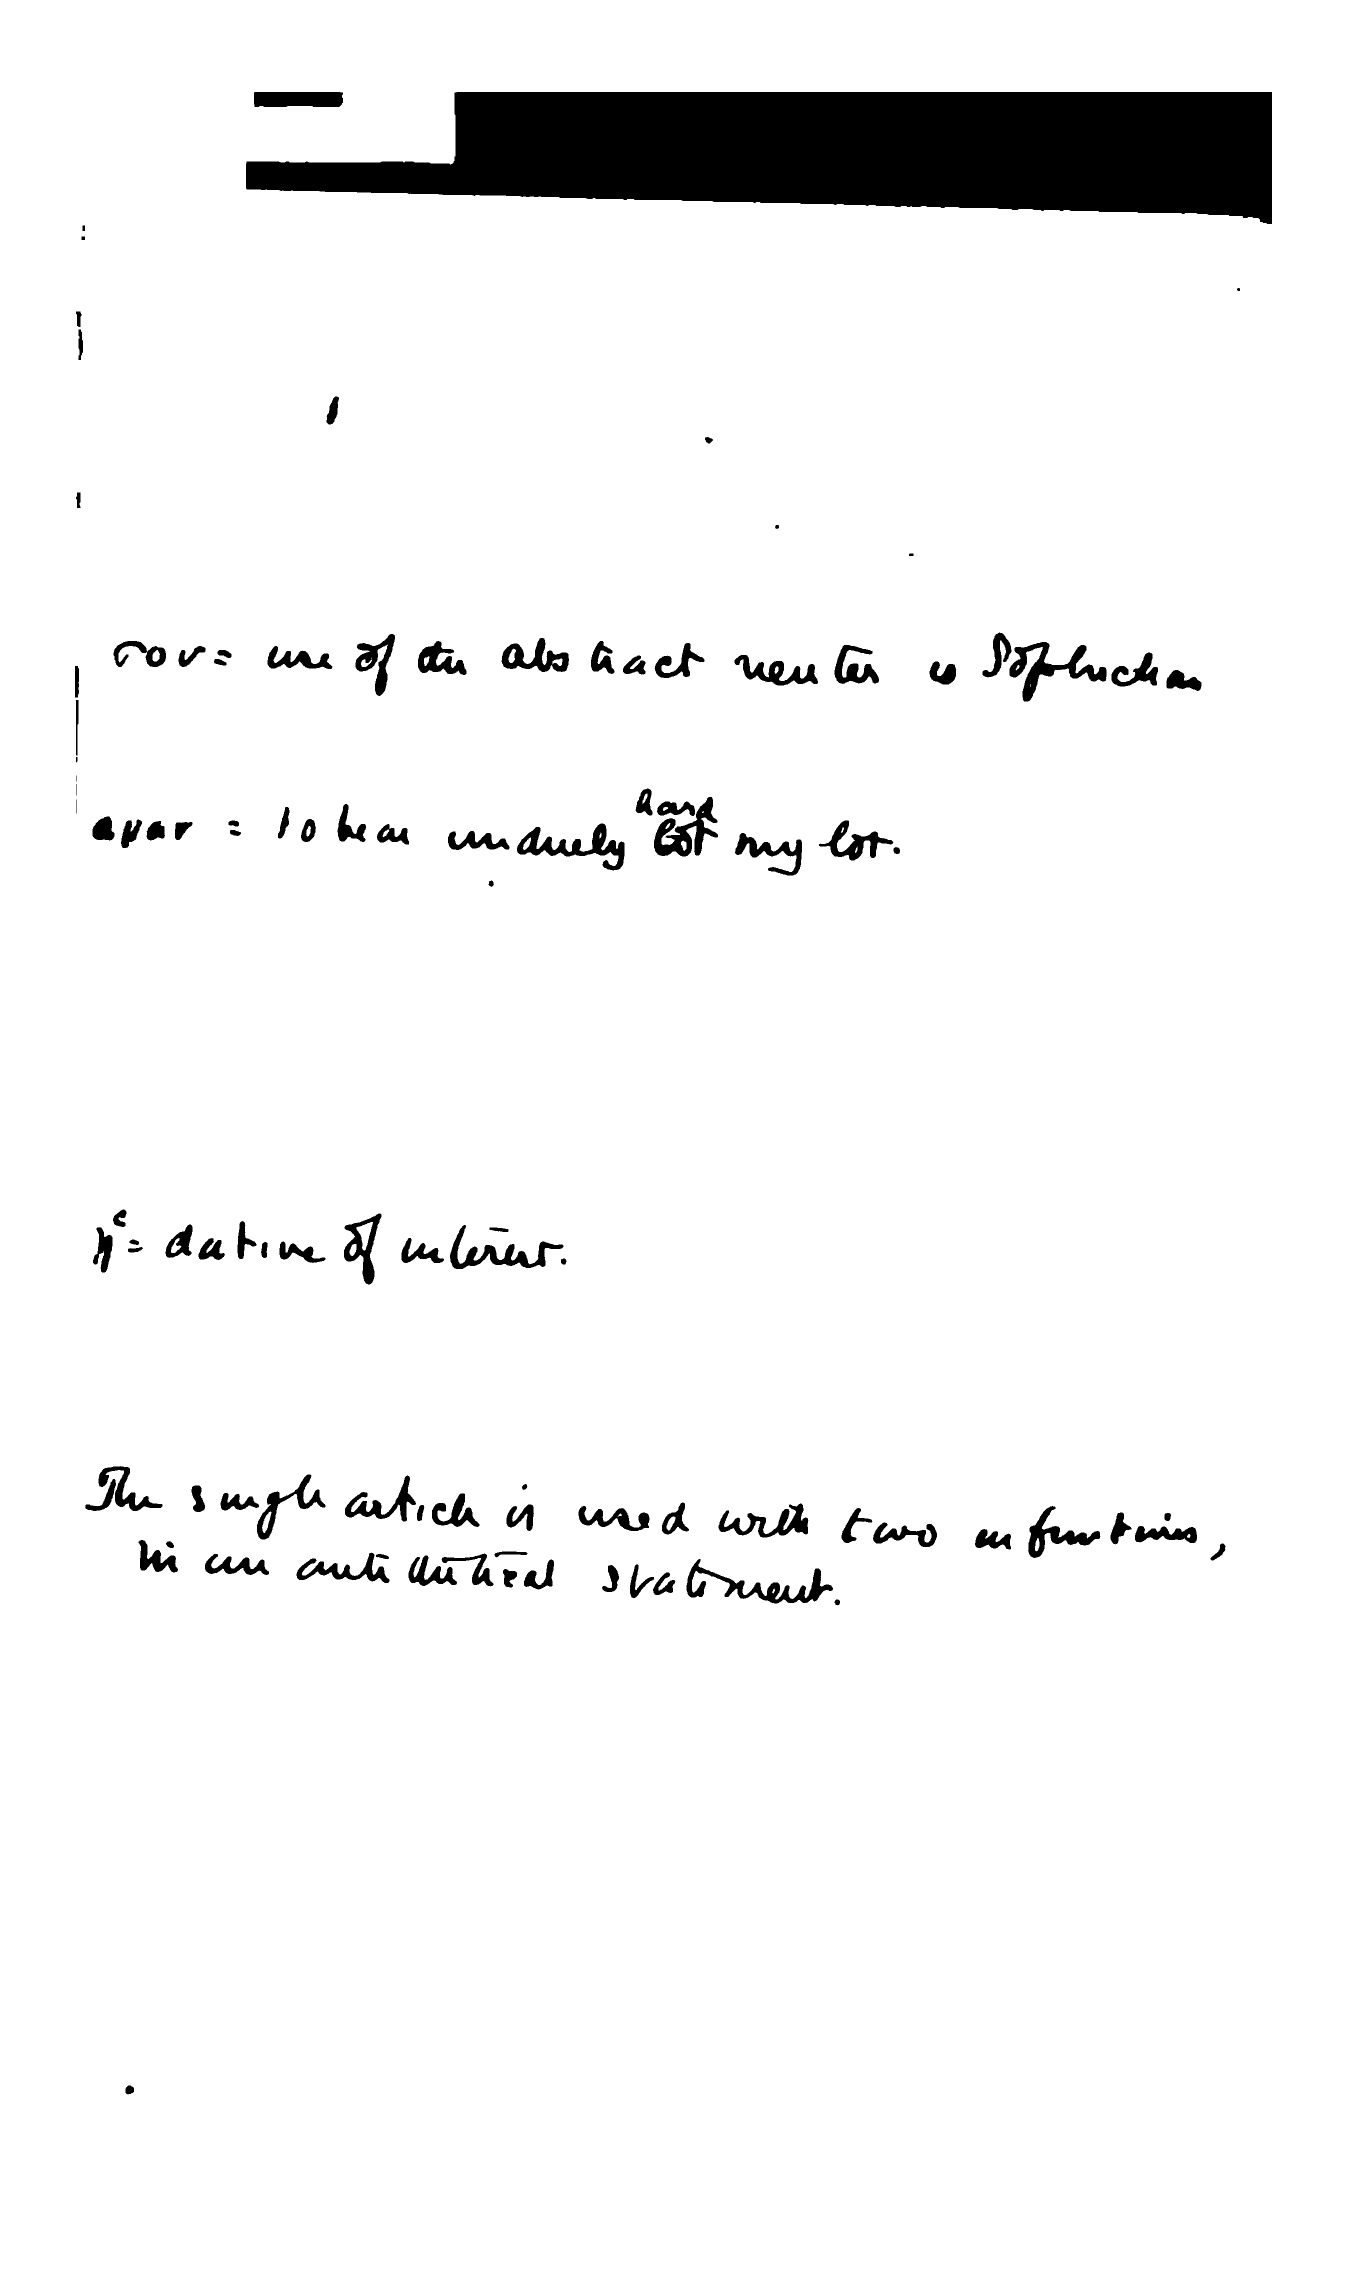 σον = use of the abstract neuter is Sophoclean
αγαν = to bear unduely hard my lot.
ἡ = dative of interest.
The single article is used with two infinitives,
in an antithetical statement.